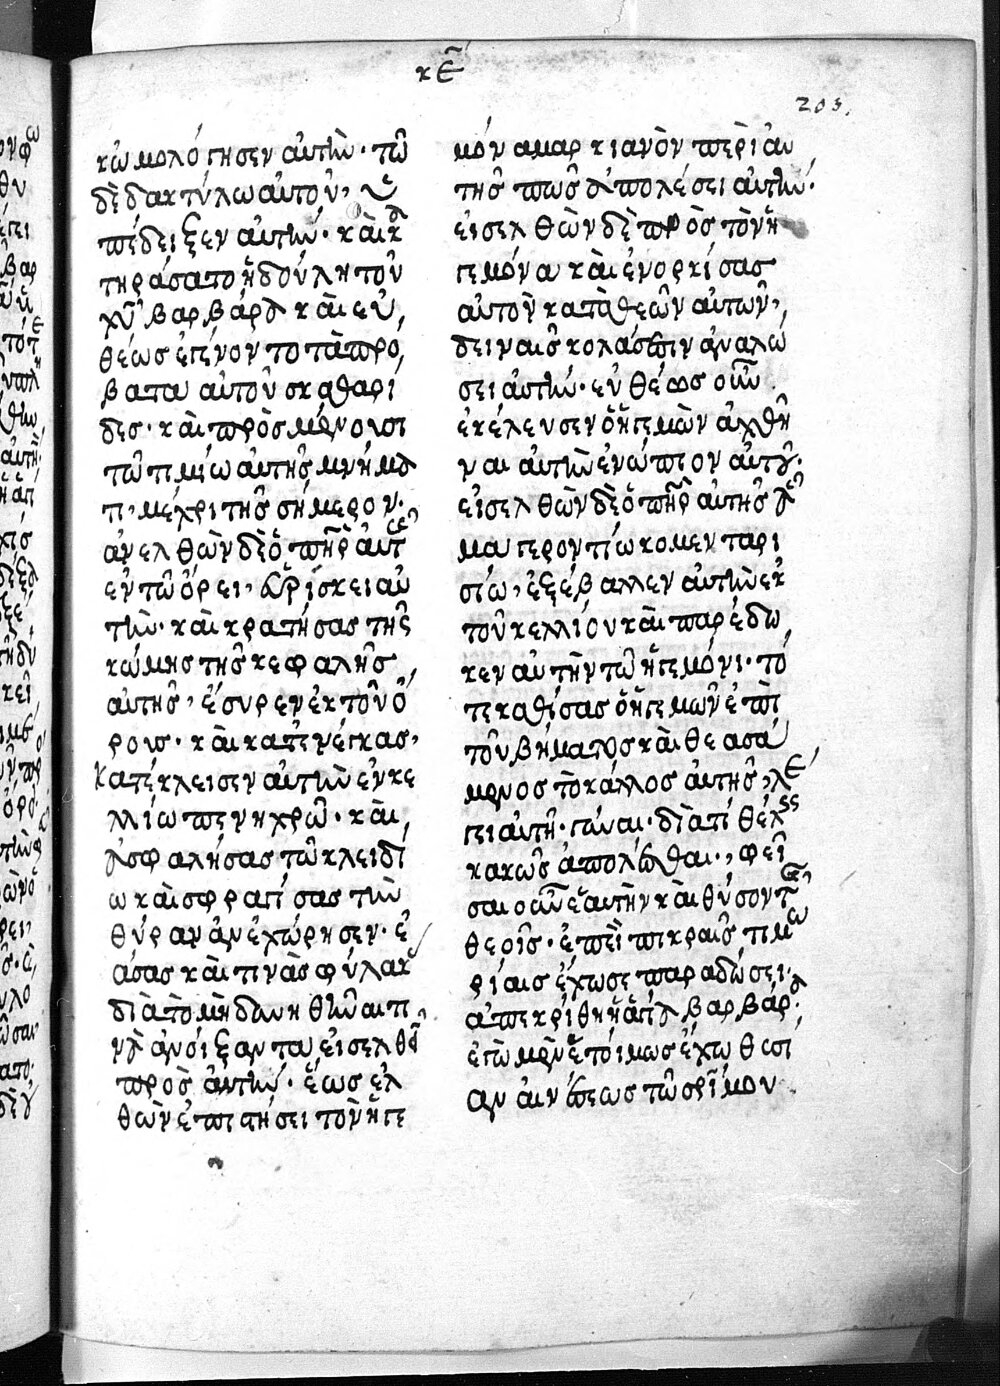 κε
203.
κὼμολόγησεν αὐτὴν· τῶ
δὲ δακτύλω αὐτοῦ, ὑ
πέδειξεν αὐτήν· καὶ κ
τηράσατο ἡ δούλη τοῦ
χῦ βαρβάρα καὶ εὐ
θέως ἐγένοντο τὰ πρό
βατα αὐτοῦ σκαθαρί
δες· καὶ προσμένουσι
τῶ τιμίω αὐτῆς μνήμα
τι μέχρι τῆς σήμερον·
ἀνελθὼν δὲ ὁ πὴρ αὐτῆς
ἐν τῶ ὄρει, εὑρίσκει αὐ
τήν· καὶ κρατήσας τῆς
κώμης τῆς κεφαλῆς
αὐτῆς, ἔσυρεν ἐκ τοῦ ὄ
ρους· καὶ κατενέγκας,
κατέκλεισεν αὐτὴν ἐν κε
λλίω πενηχρῶ· καὶ
ἀσφαλήσας τῶ κλειδί
ω καὶ σφραγίσας τὴν
θύραν ἀνεχώρησεν· ἐ
άσας καὶ τινὰς φύλακας
διὰ τὸ μὴ δυνηθῆναι τι
νὰ ἀνοίξαντα εἰσελθεῖν
πρὸς αὐτήν· ἕως ἐλ
θὼν ἐπιτήσει τὸν ἡγε
μόνα μαρκιανὸν περὶ αὐ
τῆς πῶς ἀπολέσει αὐτήν·
εἰσελθὼν δὲ πρὸς τὸν ἡ
γεμόνα καὶ ἐνορκίσας
αὐτὸν κατὰ θεῶν αὐτῶν,
δειναῖς κολάσεσιν ἀναλώ
σει αὐτήν· εὐθέως οὖν
ἐκέλευσεν ὁ ἡγεμὼν ἀχθῆ
ναι αὐτὴν ἐνώπιον αὐτοῦ·
εἰσελθὼν δὲ ὁ πὴρ αὐτῆς ἅ
μα γεροντίω κομενταρι
σίω, ἐξέβαλλεν αὐτὴν ἐκ
τοῦ κελλίου καὶ παρέδω
κεν αὐτὴν τῶ ἡγεμόνι· τό
τε καθίσας ὁ ἡγεμὼν ἐπὶ
τοῦ βήματος καὶ θεασά
μενος τὸ κάλλος αὐτῆς, λέ
γει αὐτῆ· γύναι· διατί θέλεις
κακῶς ἀπολέσθαι·, φεῖ
σαι οὖν ἑαυτὴν καὶ θύσον τοῖς
θεοῖς· ἐπεὶ πικραῖς τιμω
ρίαις ἔχω σε παραδώσει·
ἀπεκρίθη ἡ ἁγία βαρβάρα·
ἐγὼ μὲν ἑτοίμως ἔχω θυσί
αν αἰνέσεως τῶ σρῖ μου